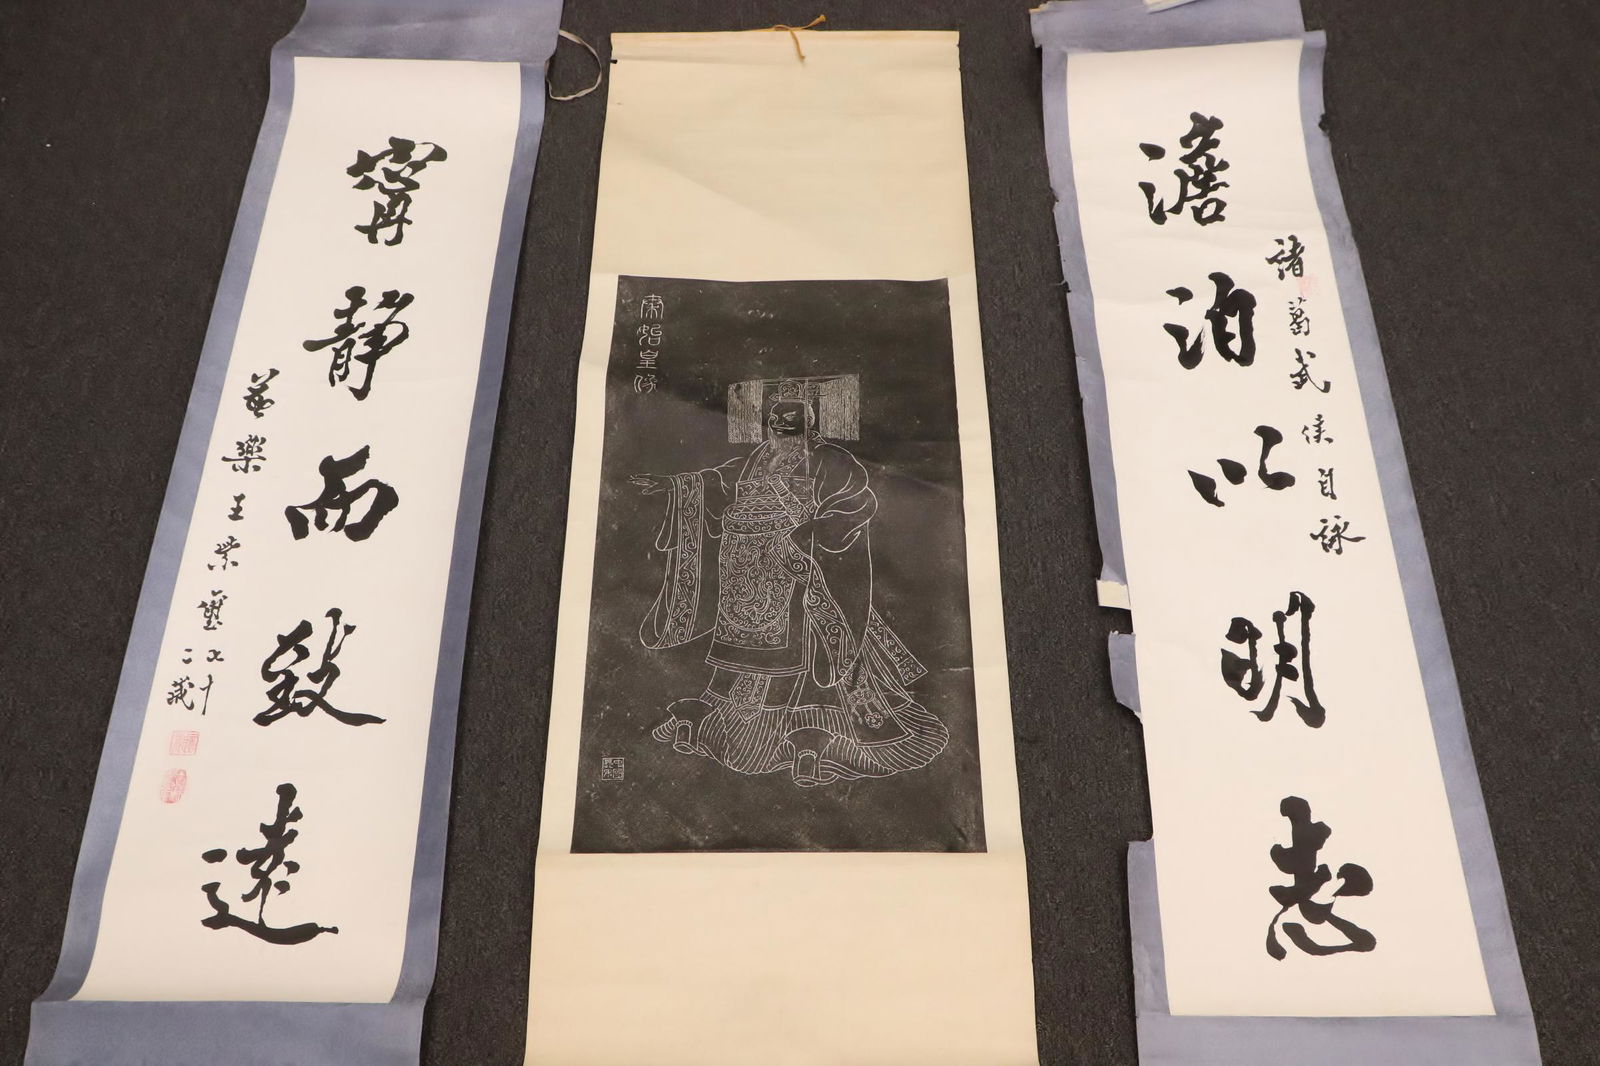 澹泊以明志
諸葛武侯自詠
秦始皇像
寧靜而致遠
樂王紫
七十
二歲